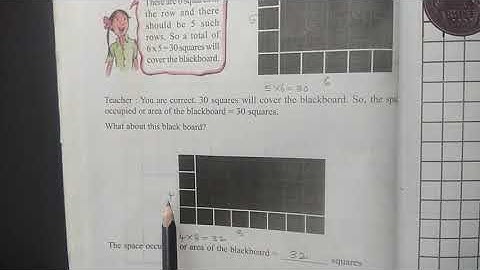 There are 6 squares in
the row and there
should be 5 such
rows. So a total of
6 x 5 = 30 squares will
cover the blackboard.
5
6
5 × 6 = 30
Teacher : You are correct. 30 squares will cover the blackboard. So, the
occupied or area of the blackboard = 30 squares.
What about this black board?
4
8
4 × 8 = 32
The space or area of the blackboard = 32 squares